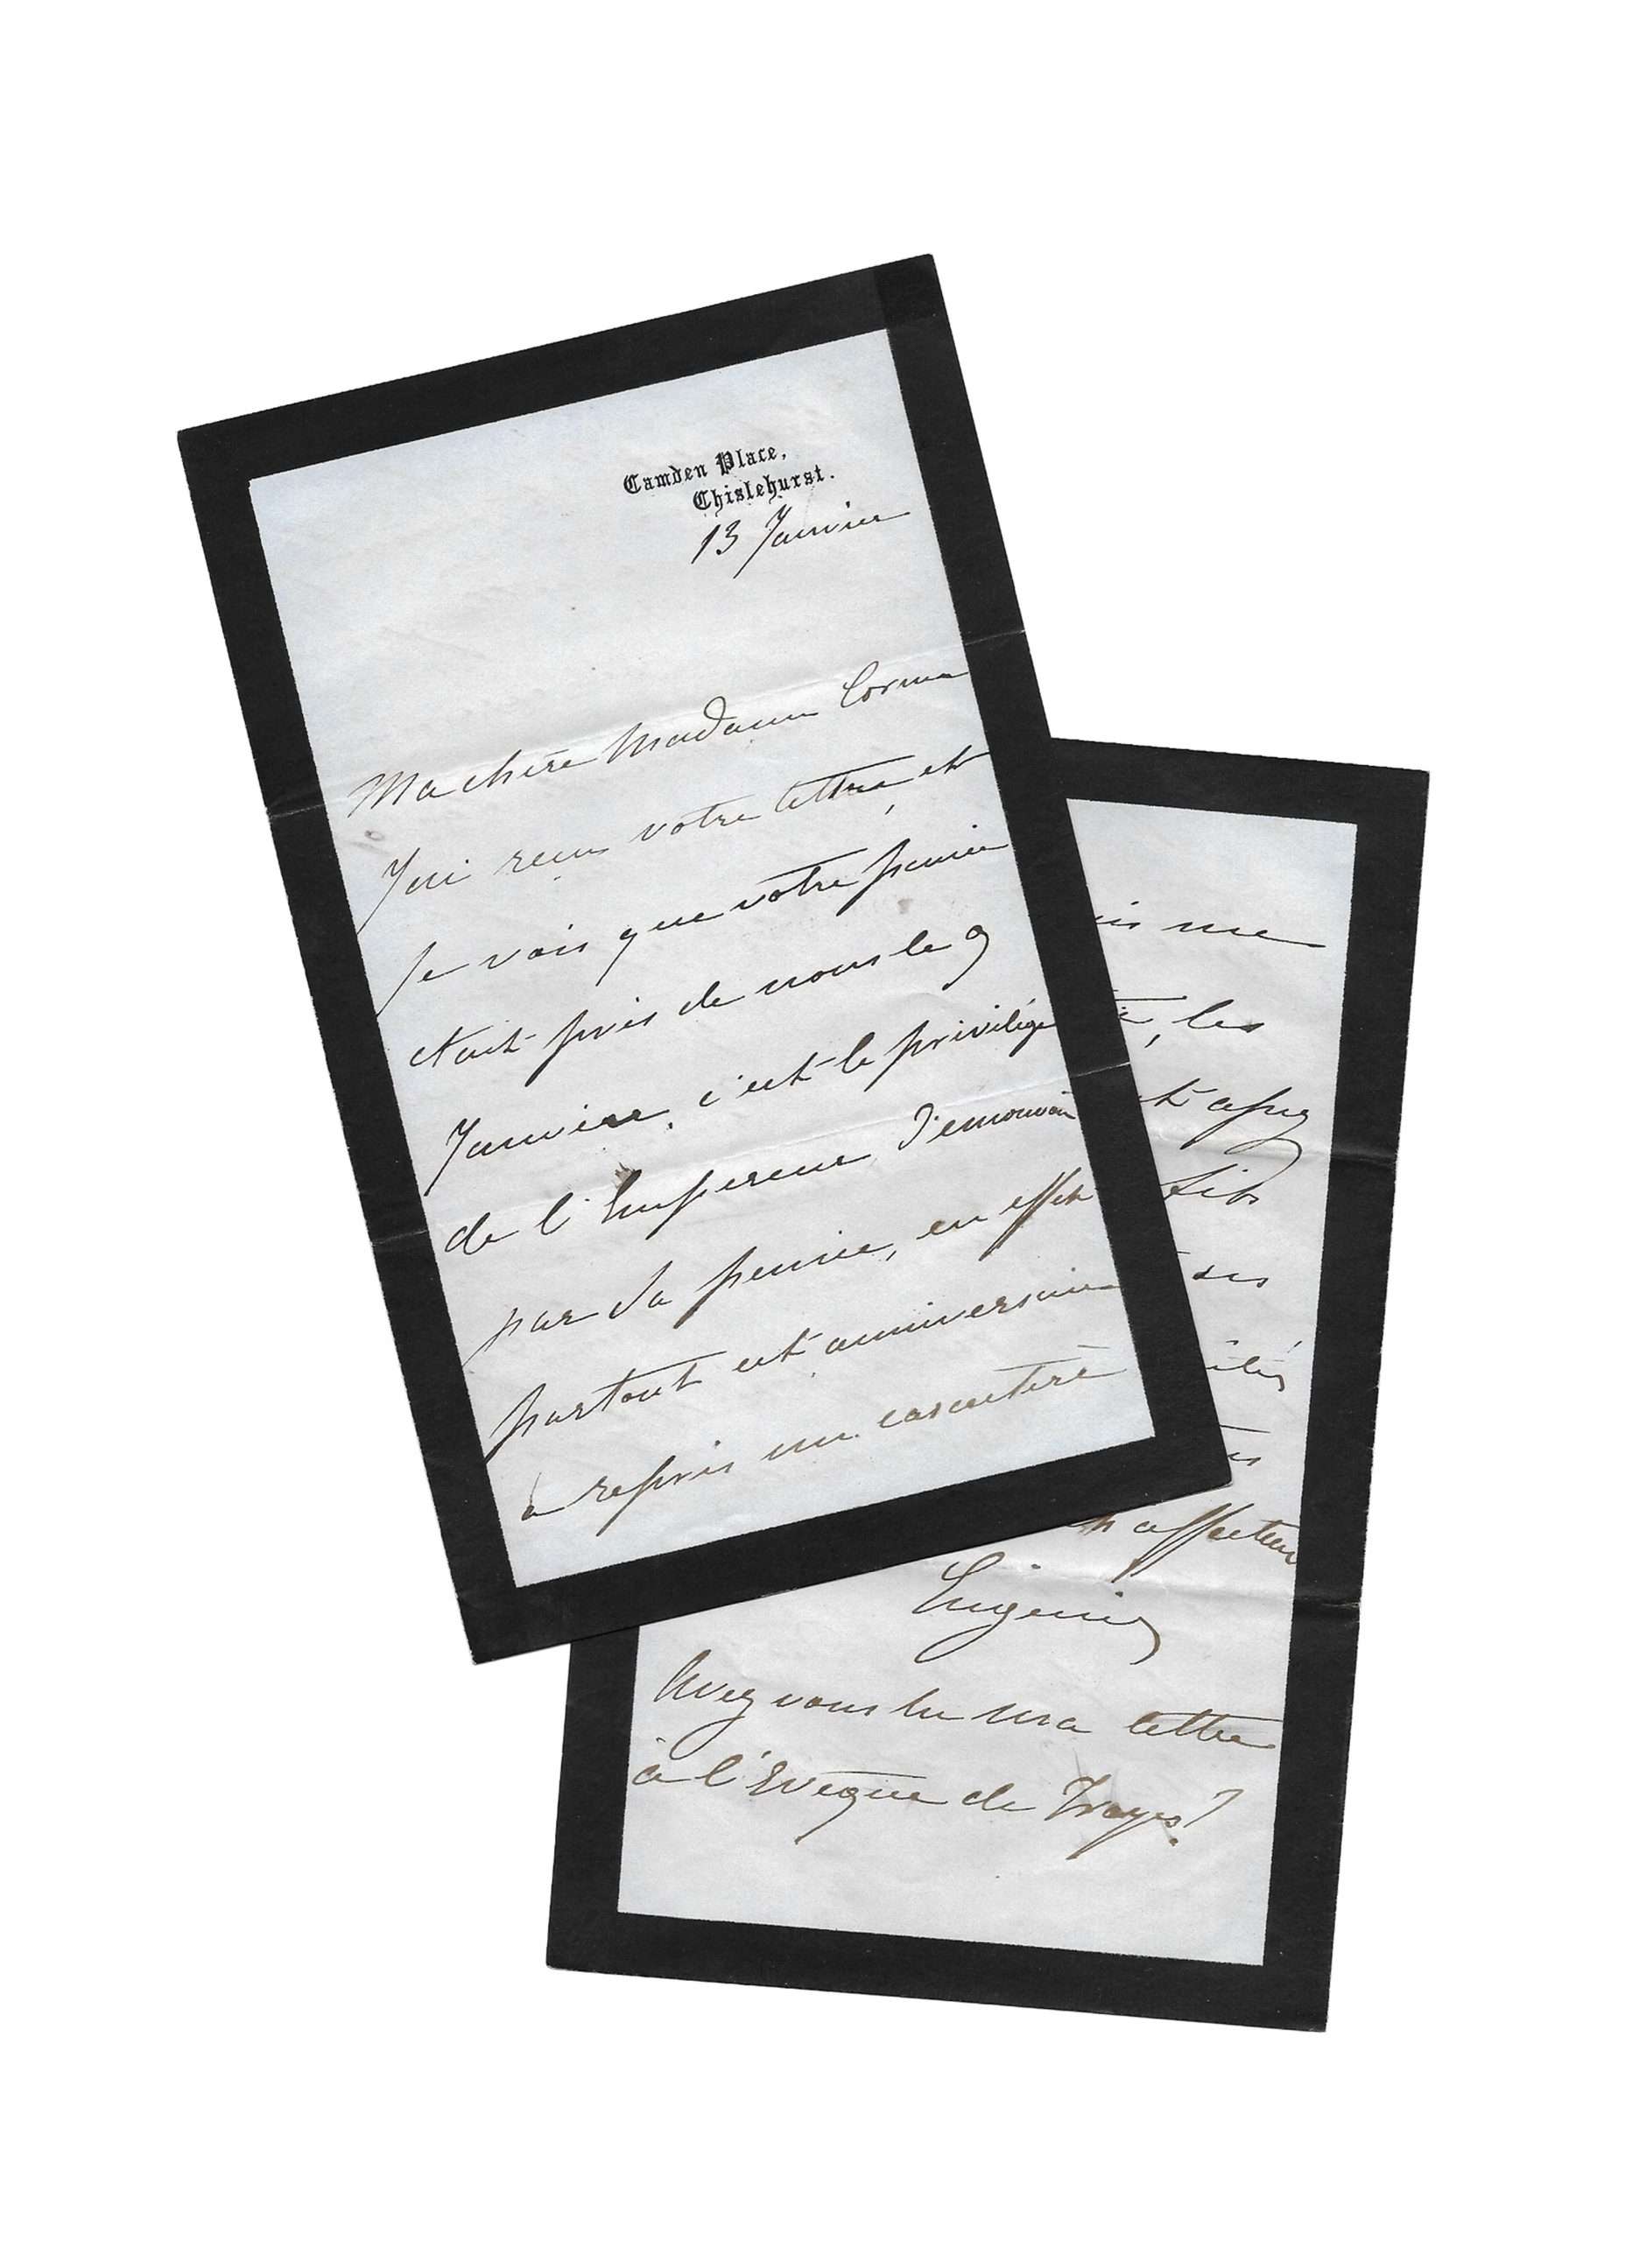 Camden Place,
Chislehurst.
13 Janvier
Ma chère Madame Cornu
J'ai reçu votre lettre, et
je vois que votre pensée
etait près de nous le 9
Janvier, c'est le privilége
de l'Empereur d'emouvoir
par sa pensée, en effet
partout cet anniversaire
a repris un caractère
me
, les
fils
ses
affectueux
Eugénie
Avez vous lu ma lettre
à l'Evêque de Troyes?